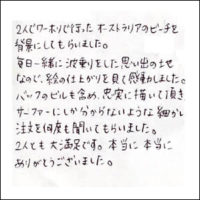 2人でワーホリで行った オーストラリアのビーチを
背景にしてもらいました。
毎日一緒に波乗りをした思い出の地
なので、絵の仕上がりを見て感動しました。
バックのビルも含め、忠実に描いて頂き
サーファーにしか分からないような細かい
注文を何度も聞いてもらいました。
2人とも大満足です。本当に本当に
ありがとうございました。